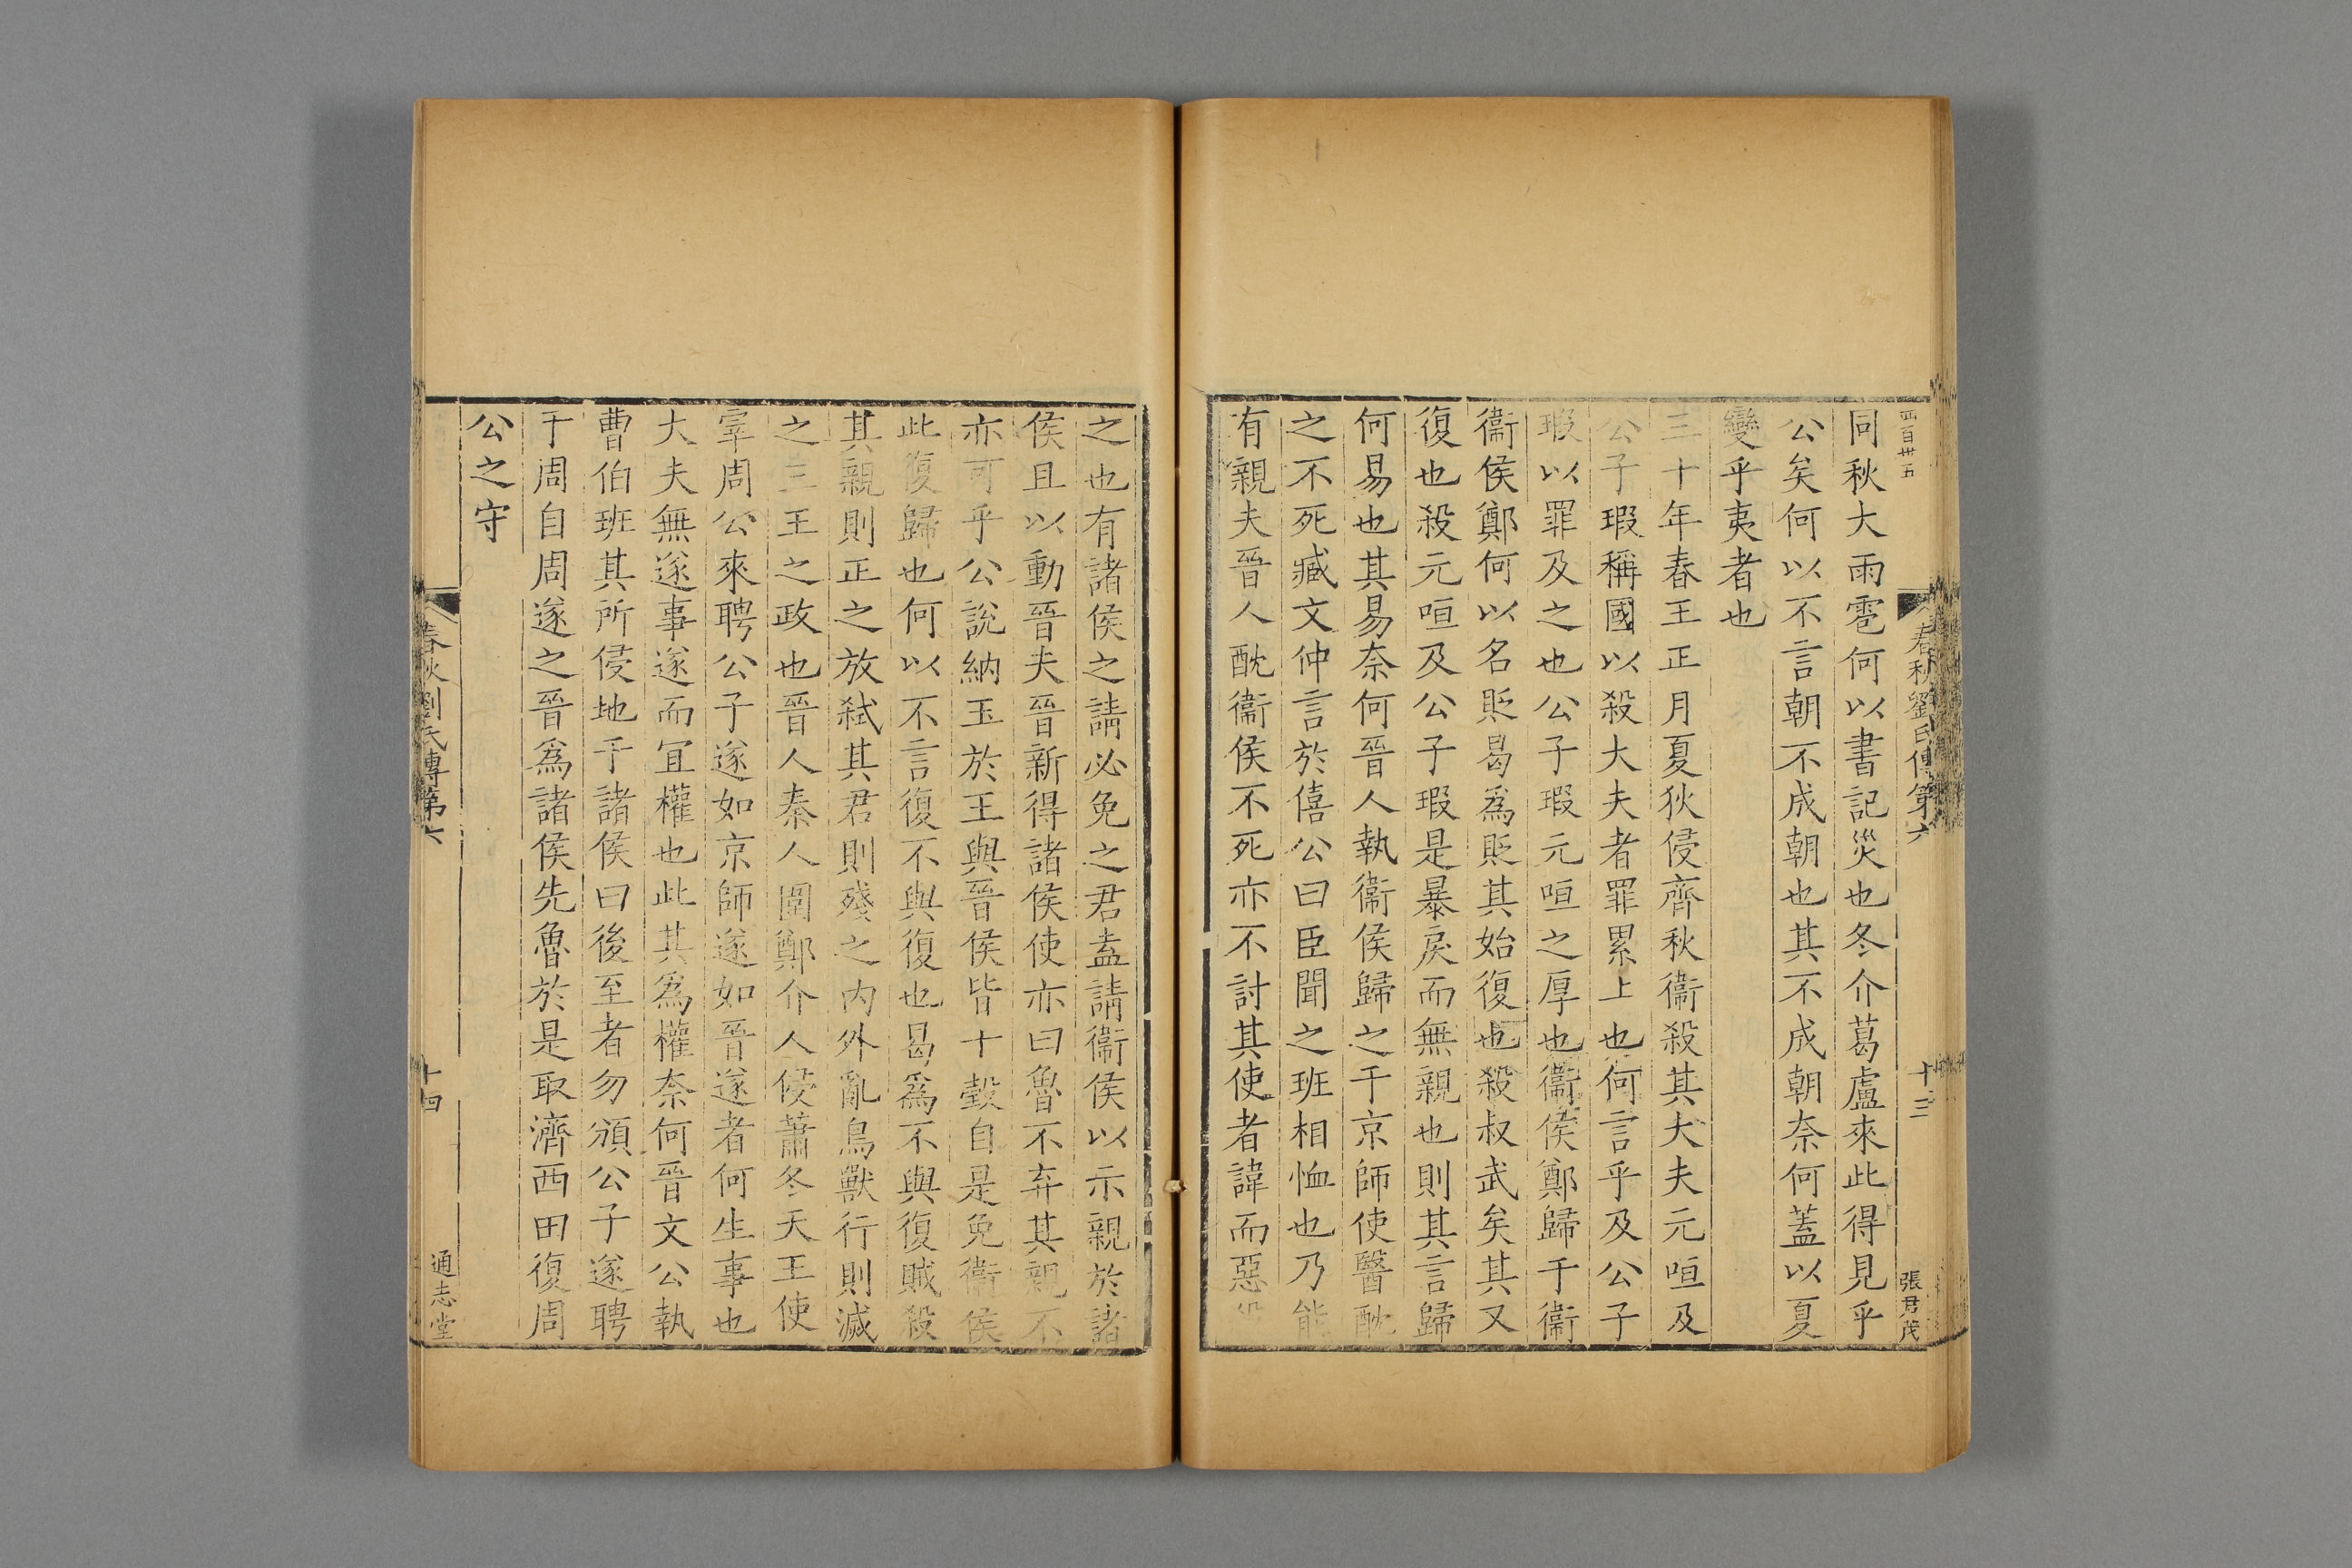 四百卅五
春秋劉氏傳第六
十三
張君茂
同秋大雨雹何以書記災也冬介葛盧來此得見乎
公矣何以不言朝不成朝也其不成朝奈何蓋以夏
變乎夷者也
三十年春王正月夏狄侵齊秋衞殺其大夫元咺及
公子瑕稱國以殺大夫者罪累上也何言乎及公子
瑕以罪及之也公子瑕元咺之厚也衞侯鄭歸于衞
衞侯鄭何以名貶曷爲貶其始復也殺叔武矣其又
復也殺元咺及公子瑕是暴戾而無親也則其言歸
何易也其易奈何晉人執衞侯歸之于京師使醫酖
之不死臧文仲言於僖公曰臣聞之班相恤也乃能
有親夫晉人酖衞侯不死亦不討其使者諱而惡
之也有諸侯之請必免之君盍請衞侯以示親於諸
侯且以動晉夫晉新得諸侯使亦曰魯不弃其親不
亦可乎公說納玉於王與晉侯皆十瑴自是免衞侯
此復歸也何以不言復不與復也曷爲不與復賊殺
其親則正之放弑其君則殘之內外亂鳥獸行則滅
之三王之政也晉人秦人圍鄭介人侵蕭冬天王使
宰周公來聘公子遂如京師遂如晉遂者何生事也
大夫無遂事遂而宜權也此其爲權奈何晉文公執
曹伯班其所侵地于諸侯曰後至者勿頒公子遂聘
于周自周遂之晉爲諸侯先魯於是取濟西田復周
公之守
春秋劉氏傳第六
十四
通志堂